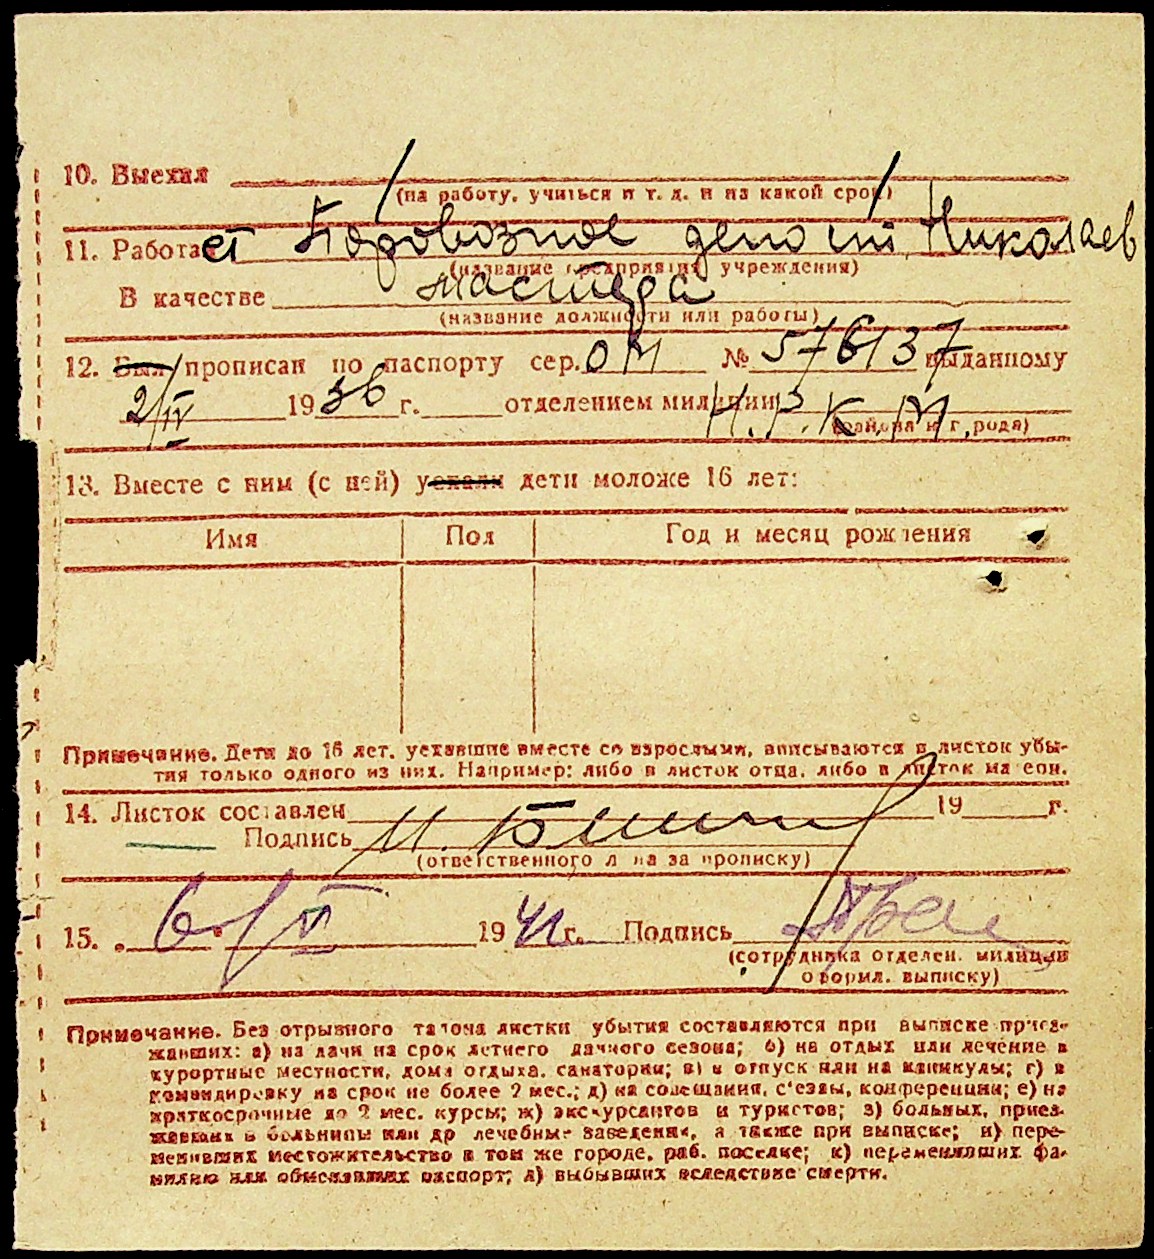 10. Выехал
(на работу, учиться и т. д. и на какой срок)
11. Работает Паровозное депо ст. Николаев
(название предприятия, учреждения)
В качестве мастера
(название должности или работы)
12. Был прописан по паспорту сер. ОМ № 576137 выданному
2/IV 1936 г. отделением милиции Н.Р.К.М.
(района и города)
13. Вместе с ним (с ней) уехали дети моложе 16 лет:
Имя Пол Год и месяц рождения
Примечание. Дети до 16 лет, уехавшие вместе со взрослыми, вписываются в листок убы-
тия только одного из них. Например: либо в листок отца, либо в листок матери.
14. Листок составлен 19 г.
Подпись
(ответственного лица за прописку)
15. 6 1941 г. Подпись
(сотрудника отделен. милиции
оформил. выписку)
Примечание. Без отрывного талона листки убытия составляются при выписке приез-
жавших: а) на дачи на срок летнего дачного сезона; б) на отдых или лечение в
курортные местности, дома отдыха, санатории; в) в отпуск или на каникулы; г) в
командировку на срок не более 2 мес.; д) на совещания, с'езды, конференции; е) на
краткосрочные до 2 мес. курсы; ж) экскурсантов и туристов; з) больных, приез-
жавших в больницы или др лечебные заведения, а также при выписке; и) пере-
менивших местожительство в том же городе, раб. поселке; к) переменявших фа-
милию или обменявших паспорт; л) выбывших вследствие смерти.